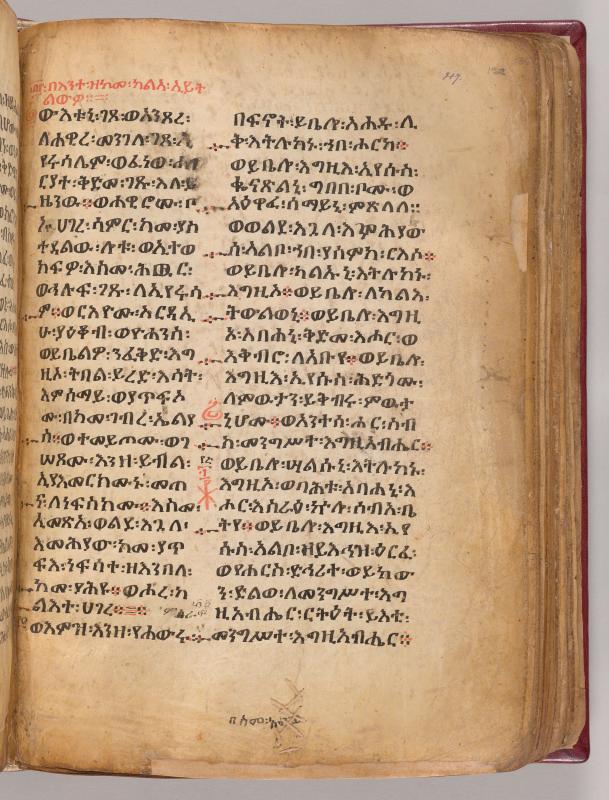 በእንተ፡ዘከመ፡ካልእ፡ኢይት
ልውዎ።
ውእቱኒ፡ገጸ፡ወአንጸረ፡
ለሐዊረ፡መንገለ፡ገጸ፡ኢ
የሩሳሌም፡ወፈነወ፡ሐዋ
ርያተ፡ቅድመ፡ገጹ፡እለ፡ይ
ዜንዉ።ወሐዊሮሙ፡ቦ
ኡ፡ሀገረ፡ሳምር፡ከመ፡ያስ
ተደልው፡ሎቱ፡ወኢተወ
ክፍዎ፡እስመ፡
ወኀሉፍ፡ገጹ፡ለኢየሩሳ
ም።ወርእዮሙ፡አርዳኢ
ሁ፡ያዕቆብ፡ወዮሐንስ፡
ወይቤልዎ፡ንፈቅድ፡እግ
ዚኦ፡ትበል፡ይረድ፡እሳት፡
እምሰማይ፡ወያጥፍኦ
ሙ፡በከመ፡ገብረ፡ኤልያ
ስ።ወተመይጦሙ፡ወገ
ሠጾሙ፡እንዘ፡ይብል፡
ኢያአመርክሙኑ፡መጠ
ኑ፡ለነፍስክሙ።እስመ፡
ኢመጽአ፡ወልደ፡እጓለ፡
እመሕያው፡ከመ፡ያጥ
ፍእ፡ነፍሳተ፡ዘእንበለ፡
ከመ፡ያሕዩ።ወሖረ፡ካ
ልእተ፡ሀገረ።
ወእምዝ፡እንዘ፡የሐውሩ።
በፍኖት፡ይቤሎ፡አሐዱ፡ሊ
ቅ፡እትሉከኑ፡ኀበ፡ሖርከ።
ወይቤሎ፡እግዚእ፡ኢየሱስ፡
ቈናጽልኒ፡ግበበ፡ቦሙ፡ወ
አዕዋፈ፡ሰማይኒ፡ምጽላለ።
ወወልደ፡እጓለ፡እምሕያው
ሰ፡አልቦ፡ኀበ፡ያሰምክ፡ርእሶ።
ወይቤሎ፡ካልኡኒ፡እትሉከኑ፡
እግዚኦ።ወይቤሎ፡ለካልእ፡
ትወልወኒ።ወይቤሎ፡እግዚ
ኦ፡አብሐኒ፡ቅድመ፡እሖር፡ወ
እቅብሮ፡ለአቡየ።ወይቤሎ፡
እግዚእ፡ኢየሱስ፡ሕድጎሙ፡
ለምዉታን፡ይቅብሩ፡ምዉታ
ኒሆሙ።ወአንተሰ፡ሖር፡ስብ
ክ፡መንግሥተ፡እግዚአብሔር።
ወይቤሎ፡ሣልሱኒ፡እትሉከኑ፡
እግዚኦ፡ወባሕቱ፡አብሐኒ፡እ
ሖር፡እስራዕ፡ኵሎ፡ሰብአ፡ቤ
ትየ።ወይቤሎ፡እግዚእ፡ኢየ
ሱስ፡አልቦ፡ዘይእኅዝ፡ዕርፈ፡
ወየሐርስ፡ድኅሪተ፡ወይከው
ን፡ድልወ፡ለመንግሥተ፡እግ
ዚአብሔር፡ርትዕት፡ይእቲ፡
መንግሥተ፡እግዚአብሔር።